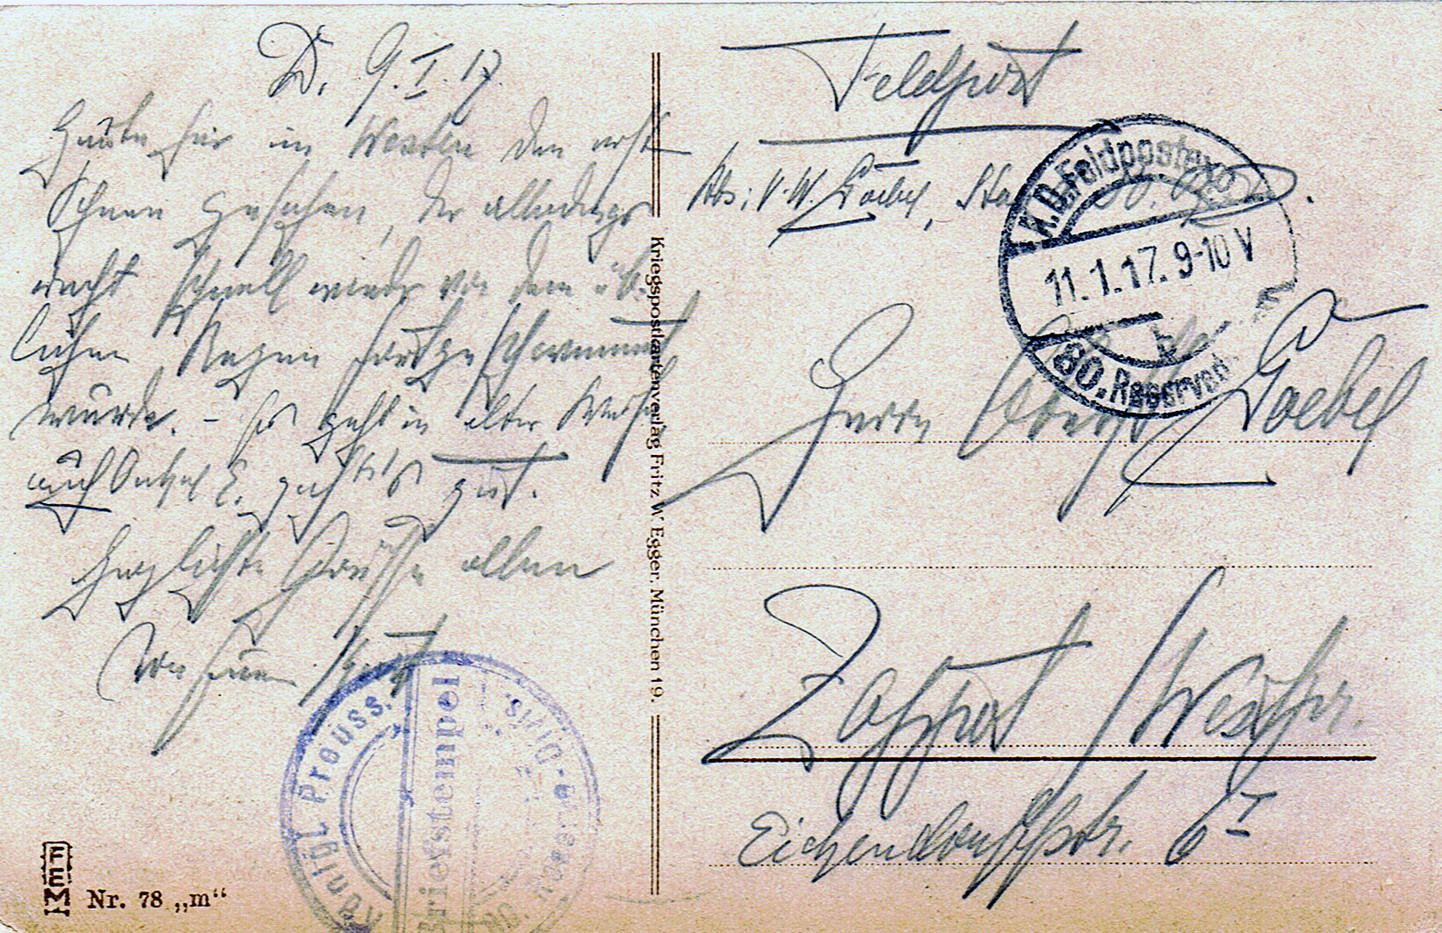 D. 9.I.17.
Heute hier im Westen den erst
Schnee gesehen, der allerdings
recht schnell wieder von dem üb-
lichen Regen fortgeschwemmt
wurde. – Es geht in alter Weise
auch Onkel E. geht's gut.
Herzlichste Grüsse allen
von Kurt
Feldpost
Abs: V.W. Goebel,
Herrn Goebel
Zoppot / Westpr.
Eichendorffstr. 6 I
K.D. Feldpostexp
11.1.17. 9-10 V
b
80. Reserve
Königl. Preuss.
Briefstempel
80. Reserve-Divis.
Kriegspostkartenverlag Fritz W Egger, München 19.
FEM
Nr. 78 „m“